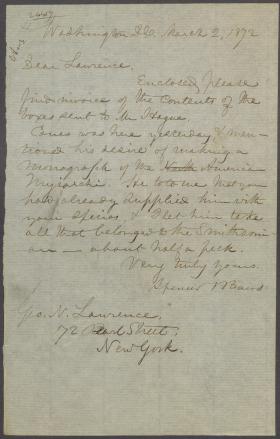 Washington D.C. March 2, 1872
Dear Lawrence,
Enclosed please
find invoice of the contents of the
boxes sent to Mr Hague.
Coues was here yesterday & men-
tioned his desire of making a
monograph of the North America
Myiarchi. He told me that you
had already supplied him with
your species, & I let him take
all that belonged to the Smithsoni-
an - about half a peck.
Very truly yours.
Spencer F Baird
Geo. N. Lawrence,
72 Pearl Street,
New York.